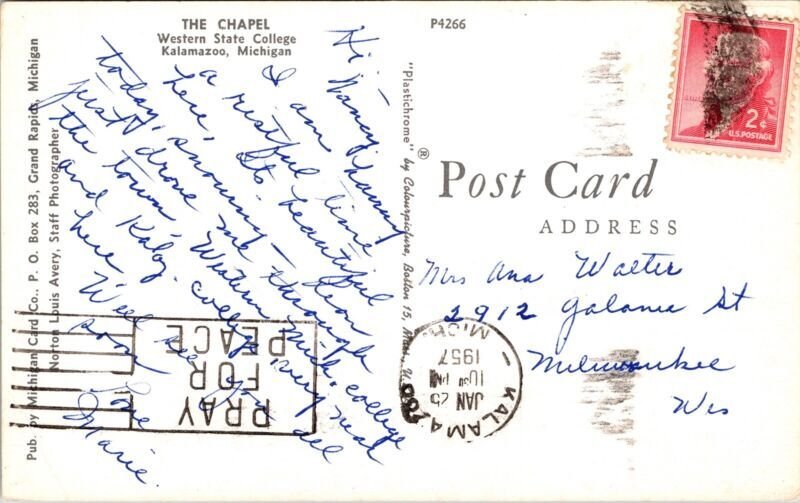 THE CHAPEL
Western State College
Kalamazoo, Michigan
P4266
Hi, Nancy,
I am having
a restful time
here. Its beautiful
today, snowing – Jean
just drove me through
the town, Western Mich. college
and college, very neat
here. Well see you all
soon Love
Marie.
Pub. by Michigan Card Co., P. O. Box 283, Grand Rapids, Michigan
Norton Louis Avery, Staff Photographer
"Plastichrome" ® by Colourpicture, Boston 15, Mass. U.
2¢
U.S. POSTAGE
Post Card
ADDRESS
Mrs Ana Walter
2912 Galena St
Milwaukee
Wis
PRAY
FOR
PEACE
KALAMAZOO
JAN 25
10 PM
1957
MICH.